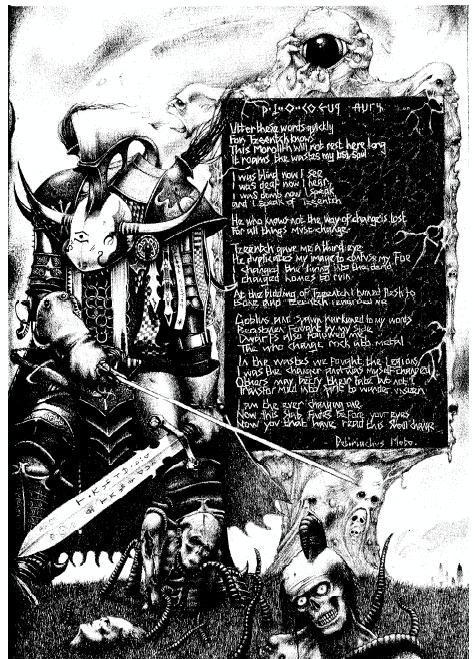 Utter these words quickly
For Tzeentch knows
This Monolith will not rest here long
It roams the wastes my lost soul
I was blind now I see
I was deaf now I hear
I was dumb now I speak
and I speak of Tzeentch
He who knows not the way of change is lost
For all things must change
Tzeentch gave me a third eye
He duplicates my image to confuse my Foe
changed the living into the dead
changed homes to ruin
At the bidding of Tzeentch I turned Flesh to
Goblins and Spawn harkened to my words
Fought by my side
Dwarfs also Followed me
The who change rock into metal
In the wastes we Fought the Legions
was the changer and was myself changed
Others may bury their
I am the ever changing one
Now this slate Fades before your eyes
Now you that have read this shall change